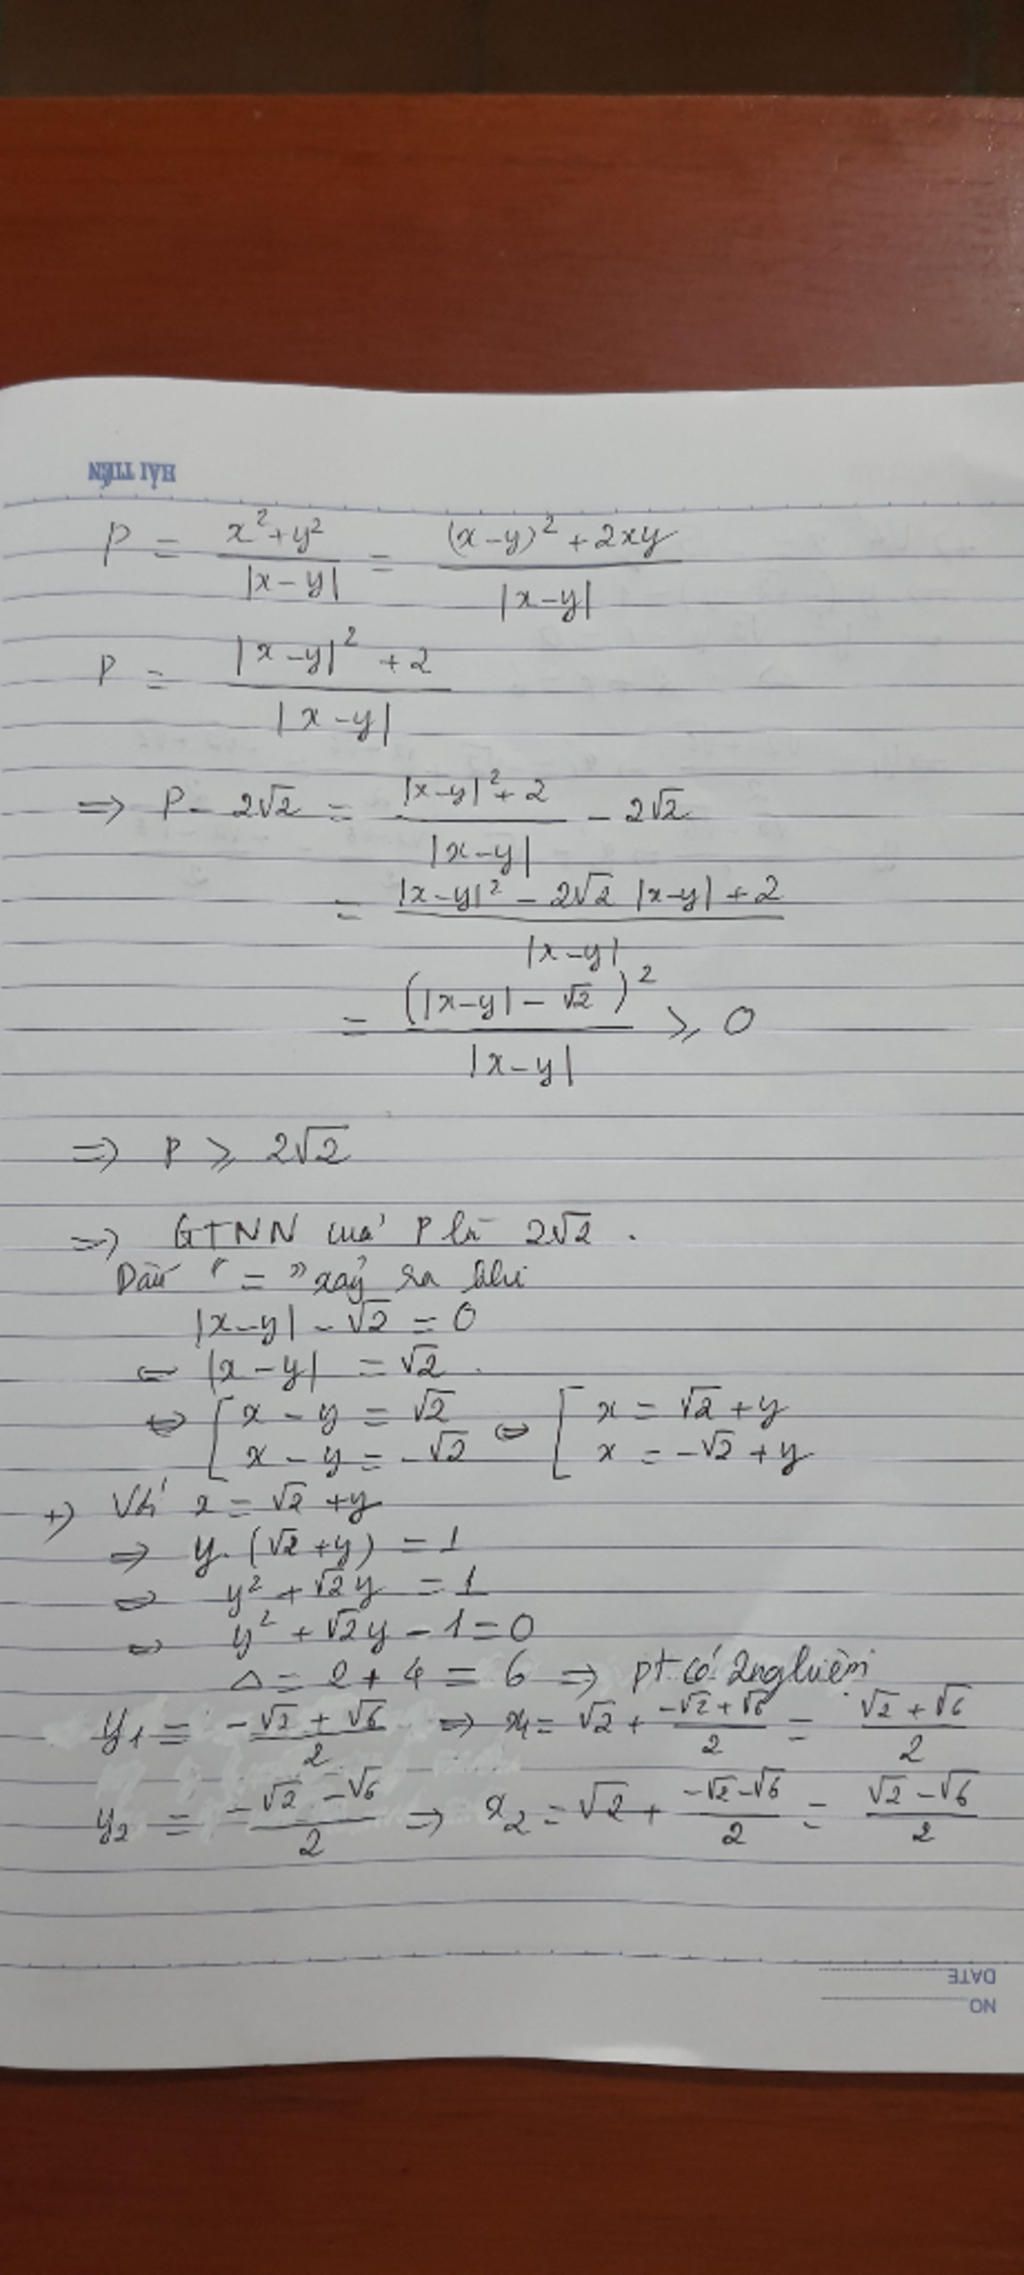 HẢI TIẾN
P = x²+y² / |x-y| = (x-y)² + 2xy / |x-y|
P = |x-y|² + 2 / |x-y|
=> P - 2√2 = |x-y|² + 2 / |x-y| - 2√2
= |x-y|² - 2√2 |x-y| + 2 / |x-y|
= (|x-y| - √2)² / |x-y| ≥ 0
=> P ≥ 2√2
=> GTNN của P là 2√2 .
Dấu "=" xảy ra khi
|x-y| - √2 = 0
⇔ |x-y| = √2 .
⇔ [ x - y = √2 ⇔ [ x = √2 + y
x - y = -√2 x = -√2 + y
+) Với x = √2 + y
=> y. (√2 + y) = 1
⇔ y² + √2y = 1
⇔ y² + √2y - 1 = 0
Δ = 2 + 4 = 6 => pt có 2 nghiệm
y₁ = -√2 + √6 / 2 => x₁ = √2 + -√2 + √6 / 2 = √2 + √6 / 2
y₂ = -√2 - √6 / 2 => x₂ = √2 + -√2 - √6 / 2 = √2 - √6 / 2
DATE
NO